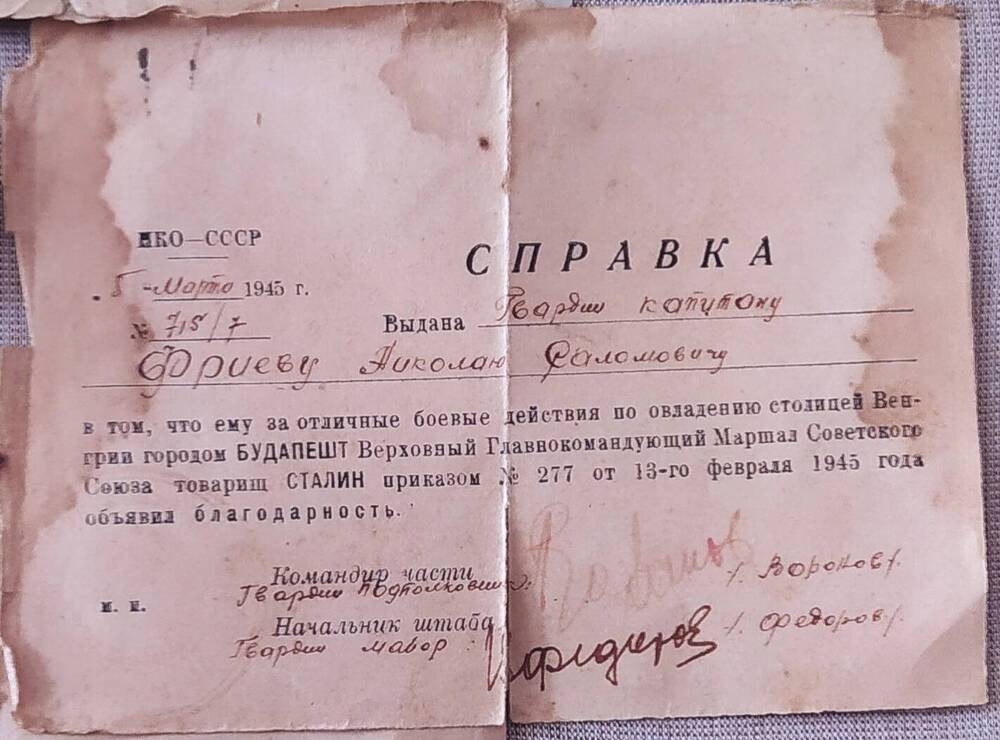 НКО—СССР
СПРАВКА
5 - Марта 1945 г.
№ 715/7
Выдана Гвардии капитану
Фриеву Николаю Саломовичу
в том, что ему за отличные боевые действия по овладению столицей Вен-
грии городом БУДАПЕШТ Верховный Главнокомандующий Маршал Советского
Союза товарищ СТАЛИН приказом № 277 от 13-го февраля 1945 года
объявил благодарность.
Командир части
Гвардии подполковник: /Воронов/.
м. п.
Начальник штаба
Гвардии майор: /Федоров/.